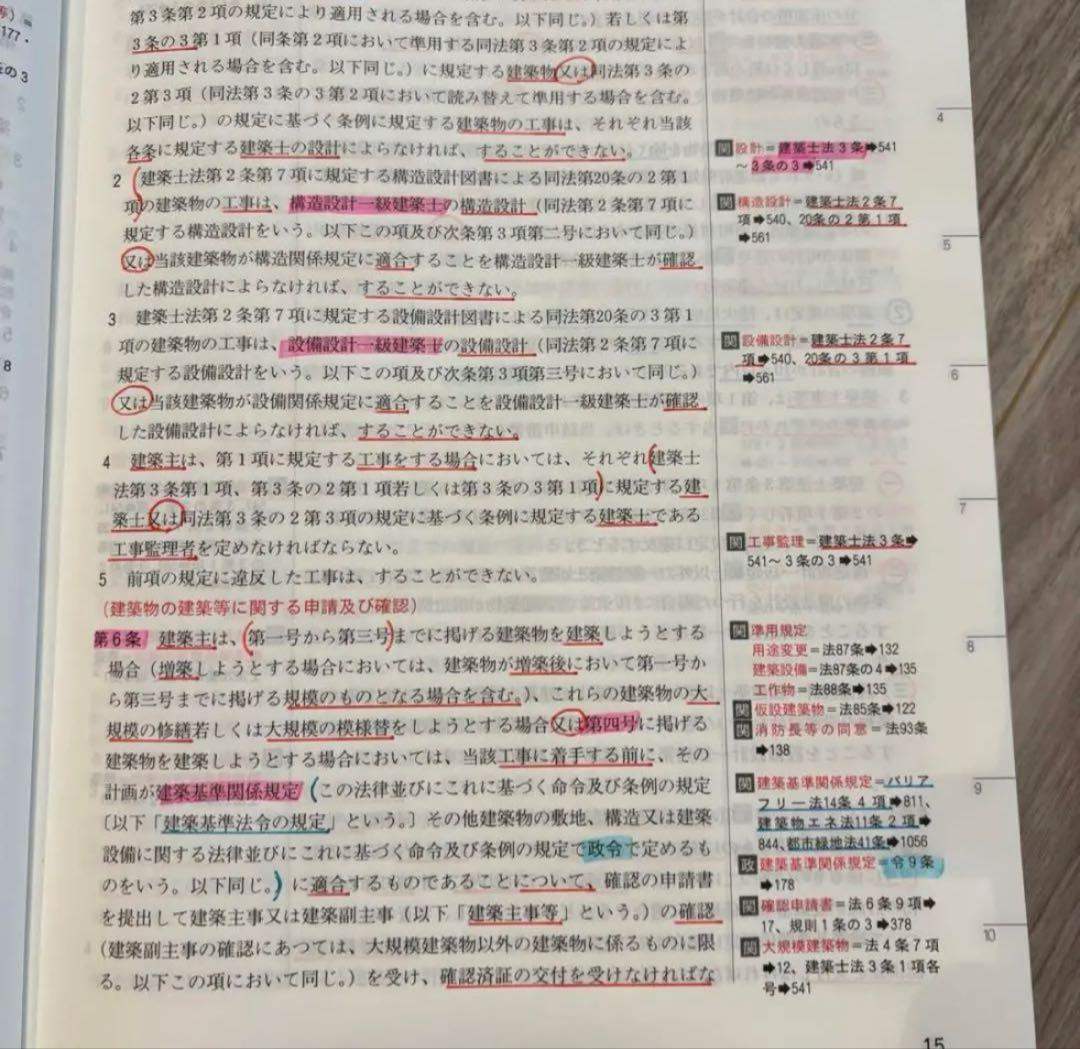 等)
177・
条の3
8
第3条第2項の規定により適用される場合を含む。以下同じ。）若しくは第
3条の3第1項（同条第2項において準用する同法第3条第2項の規定によ
り適用される場合を含む。以下同じ。）に規定する建築物又は同法第3条の
2第3項（同法第3条の3第2項において読み替えて準用する場合を含む。
以下同じ。）の規定に基づく条例に規定する建築物の工事は、それぞれ当該
各条に規定する建築士の設計によらなければ、することができない。
2 建築士法第2条第7項に規定する構造設計図書による同法第20条の2第1
項の建築物の工事は、構造設計一級建築士の構造設計（同法第2条第7項に
規定する構造設計をいう。以下この項及び次条第3項第二号において同じ。）
又は当該建築物が構造関係規定に適合することを構造設計一級建築士が確認
した構造設計によらなければ、することができない。
3 建築士法第2条第7項に規定する設備設計図書による同法第20条の3第1
項の建築物の工事は、設備設計一級建築士の設備設計（同法第2条第7項に
規定する設備設計をいう。以下この項及び次条第3項第三号において同じ。）
又は当該建築物が設備関係規定に適合することを設備設計一級建築士が確認
した設備設計によらなければ、することができない。
4 建築主は、第1項に規定する工事をする場合においては、それぞれ建築士
法第3条第1項、第3条の2第1項若しくは第3条の3第1項に規定する建
築士又は同法第3条の2第3項の規定に基づく条例に規定する建築士である
工事監理者を定めなければならない。
5 前項の規定に違反した工事は、することができない。
（建築物の建築等に関する申請及び確認）
第6条 建築主は、第一号から第三号までに掲げる建築物を建築しようとする
場合（増築しようとする場合においては、建築物が増築後において第一号か
ら第三号までに掲げる規模のものとなる場合を含む。）、これらの建築物の大
規模の修繕若しくは大規模の模様替をしようとする場合又は第四号に掲げる
建築物を建築しようとする場合においては、当該工事に着手する前に、その
計画が建築基準関係規定（この法律並びにこれに基づく命令及び条例の規定
〔以下「建築基準法令の規定」という。〕その他建築物の敷地、構造又は建築
設備に関する法律並びにこれに基づく命令及び条例の規定で政令で定めるも
のをいう。以下同じ。）に適合するものであることについて、確認の申請書
を提出して建築主事又は建築副主事（以下「建築主事等」という。）の確認
（建築副主事の確認にあつては、大規模建築物以外の建築物に係るものに限
る。以下この項において同じ。）を受け、確認済証の交付を受けなければな
関 設計＝建築士法3条➡541
～3条の3➡541
関 構造設計＝建築士法2条7
項➡540、20条の2第1項
➡561
関 設備設計＝建築士法2条7
項➡540、20条の3第1項
➡561
関 工事監理＝建築士法3条➡
541～3条の3➡541
関 準用規定
用途変更＝法87条➡132
建築設備＝法87条の4➡135
工作物＝法88条➡135
関 仮設建築物＝法85条➡122
関 消防長等の同意＝法93条
➡138
関 建築基準関係規定＝バリア
フリー法14条4項➡811、
建築物エネ法11条2項➡
844、都市緑地法41条➡1056
政 建築基準関係規定＝令9条
➡178
関 確認申請書＝法6条9項➡
17、規則1条の3➡378
関 大規模建築物＝法4条7項
➡12、建築士法3条1項各
号➡541
4
5
6
7
8
9
10
15